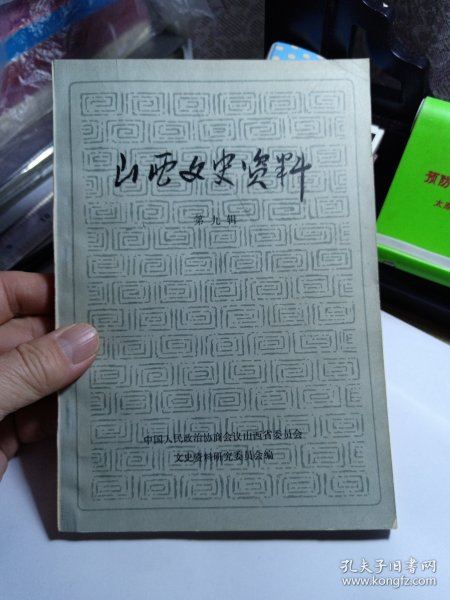 山西文史资料
第九辑
中国人民政治协商会议山西省委员会
文史资料研究委员会编
预防
太原
孔夫子旧书网
www.kongfz.com